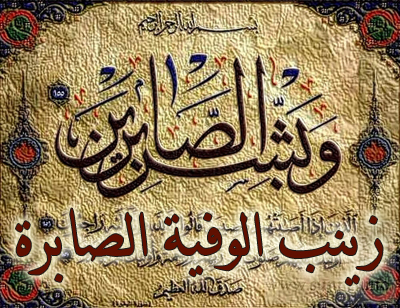 بسم الله الرحمن الرحيم
وَبَشِّرِ الصَّابِرِينَ ١٥٥
الذين إذا
زينب الوفية الصابرة
صدق الله العظيم